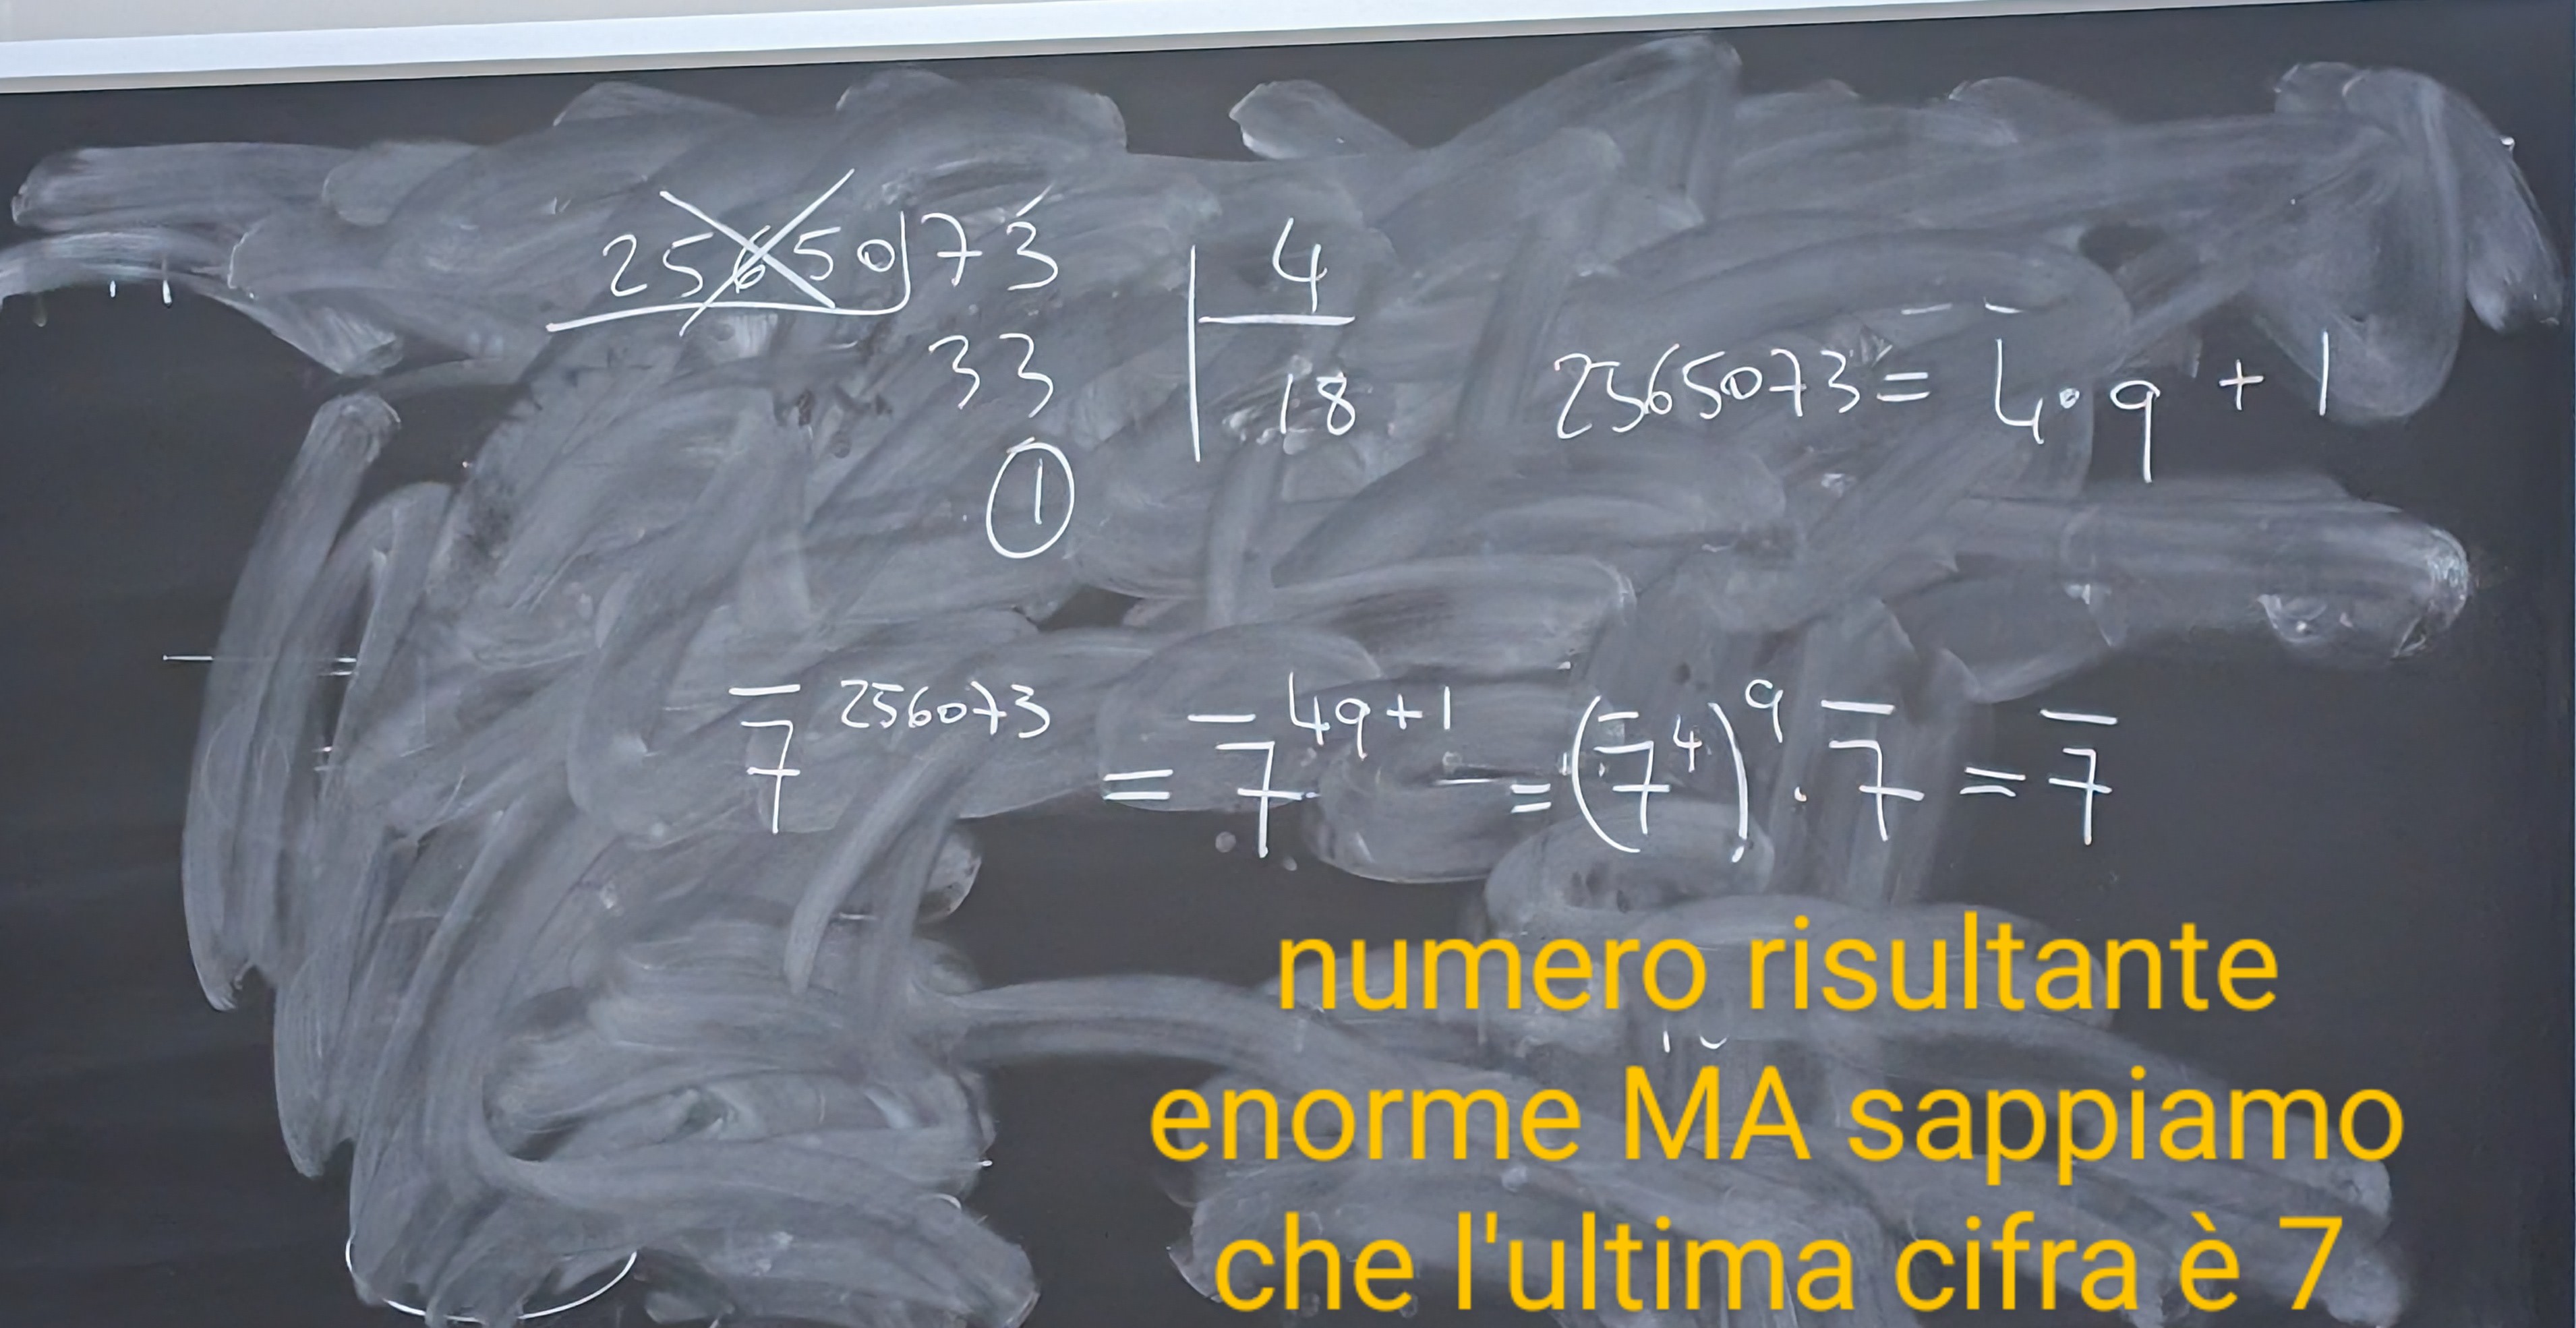 2565073 | 4
33 | 18
1
2565073 = 4̅ · q + 1
7̅^256073 = 7̅^4q+1 = (7̅^4)^q · 7̅ = 7̅
numero risultante
enorme MA sappiamo
che l'ultima cifra è 7